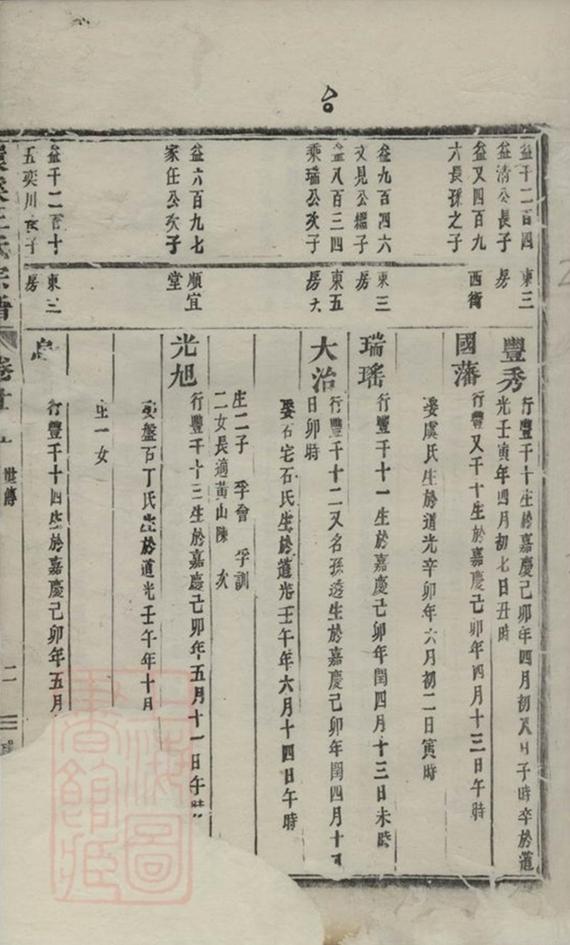 益千二百四 東三
益清公長子 房
豐秀 行豐千十生於嘉慶己卯年四月初八日子時卒於道
光壬寅年四月初七日丑時
益又四百九 西街
六長孫之子
國藩 行豐又千十生於嘉慶己卯年四月十三日午時
娶虞氏生於道光辛卯年六月初二日寅時
益九百四六 東三
文見公繼子 房
瑞瑤 行豐千十一生於嘉慶己卯年閏四月十三日未時
益八百三四 東五
乘瑞公次子 房
大治 行豐千十二又名孫透生於嘉慶己卯年閏四月十
日卯時
娶石宅石氏生於道光壬午年六月十四日午時
生二子 孚會 孚訓
二女長適黃山陳 次
益六百九七 順宜
家任公次子 堂
光旭 行豐千十三生於嘉慶己卯年五月十一日午時
娶盤古丁氏生於道光壬午年十月
生一女
益千二百十 東三
五奕川 子 房
行豐千十四生於嘉慶己卯年五月
王氏宗譜 卷廿 世傳 二
圖書館藏